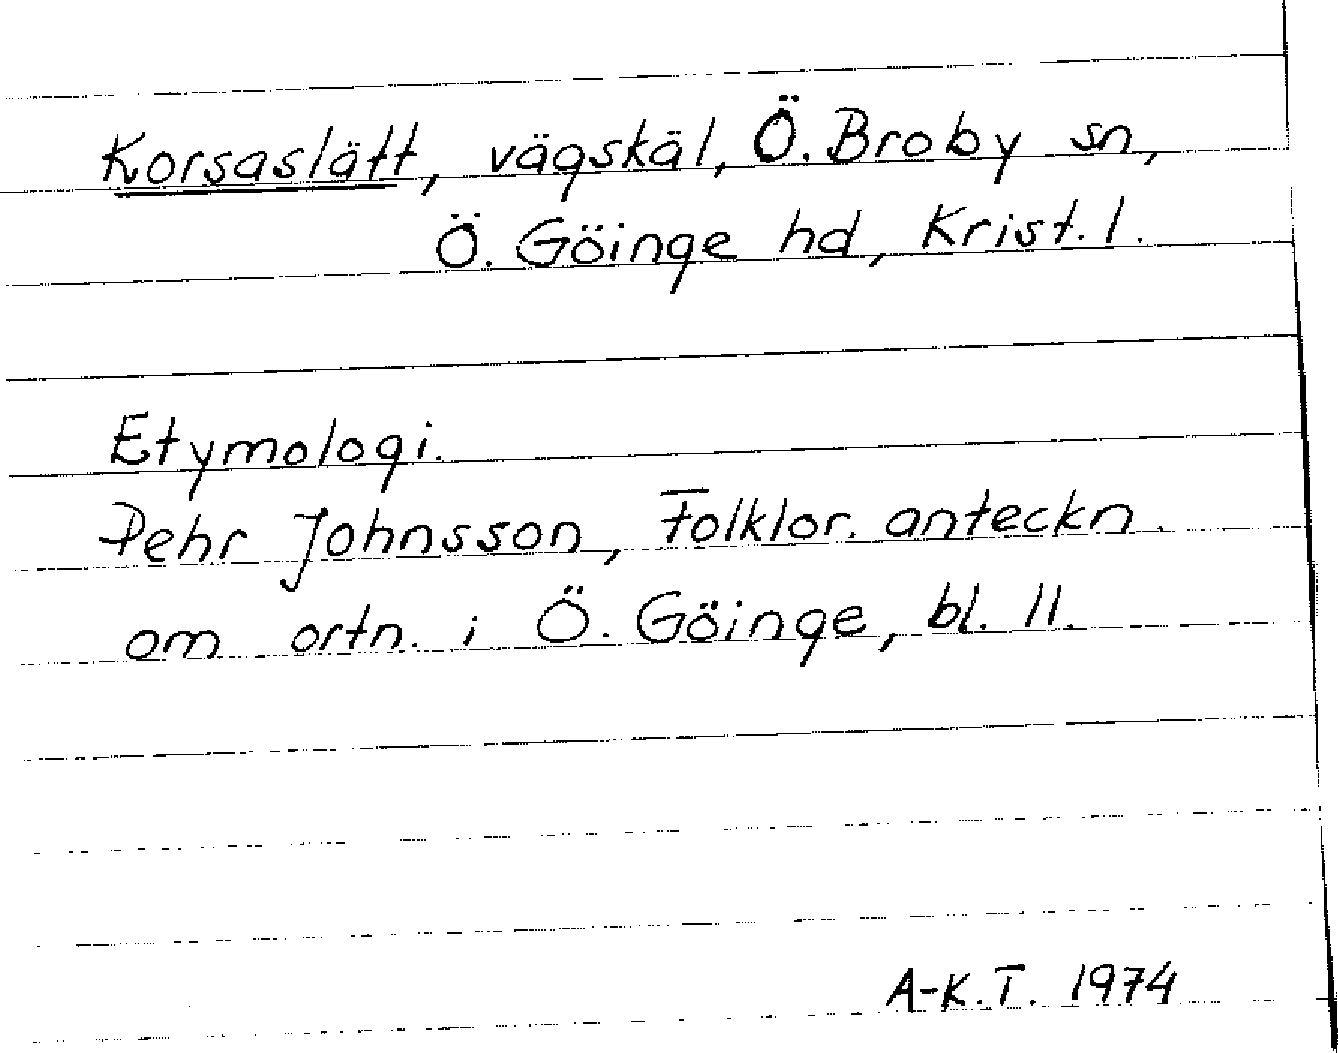 Korsaslätt, vägskäl, Ö. Broby sn,
Ö. Göinge hd, Krist. l.
Etymologi.
Pehr Johnsson, Folklor. anteckn.
om ortn. i Ö. Göinge, bl. 11.
A-K.T. 1974